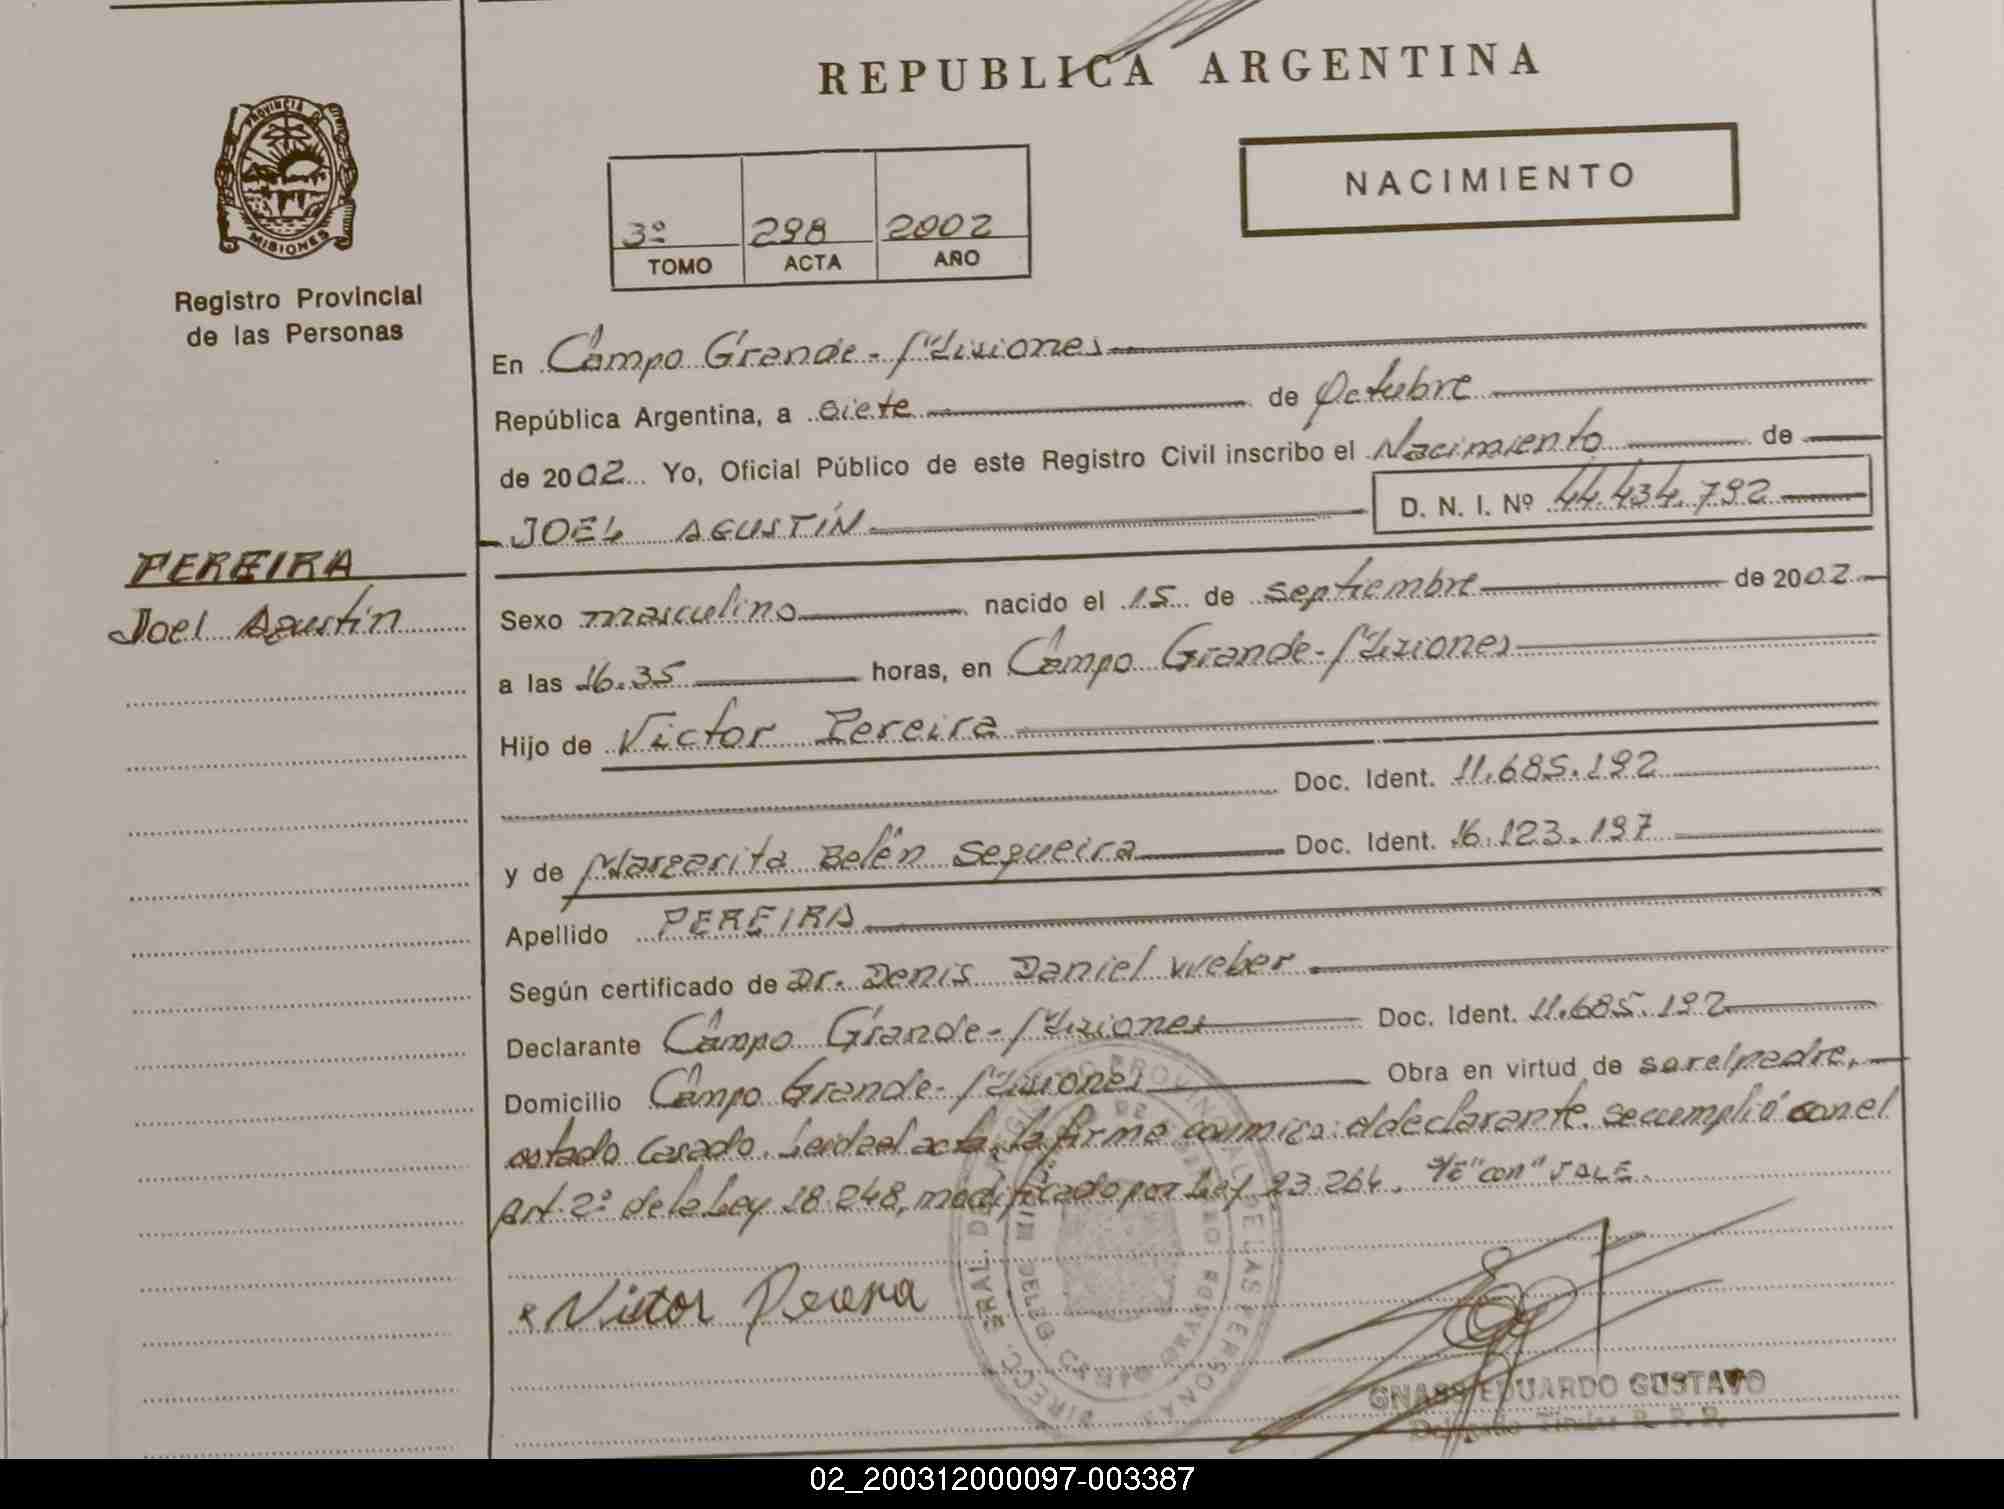 REPUBLICA ARGENTINA
PROVINCIA DE
MISIONES
Registro Provincial
de las Personas
NACIMIENTO
3º 298 2002
TOMO ACTA AÑO
En Campo Grande - Misiones
República Argentina, a siete de Octubre
de 2002 Yo, Oficial Público de este Registro Civil inscribo el Nacimiento de
JOEL AGUSTÍN D. N. I. Nº 44.434.792
PEREIRA
Joel Agustín
Sexo masculino nacido el 15 de septiembre de 2002
a las 16.35 horas, en Campo Grande - Misiones
Hijo de Victor Pereira
Doc. Ident. 11.685.192
y de Margarita Belén Sequeira Doc. Ident. 16.123.197
Apellido PEREIRA
Según certificado de Dr. Denis Daniel Weber
Declarante Campo Grande - Misiones Doc. Ident. 11.685.192
Domicilio Campo Grande - Misiones Obra en virtud de ser el padre,
estado casado. Leída el acta, la firma conmigo el declarante. se cumplió con el
Art. 2º de la Ley 18.248, modificado por Ley 23.264. "con" VALE.
Victor Pereira
GNASS EDUARDO GUSTAVO
02_200312000097-003387